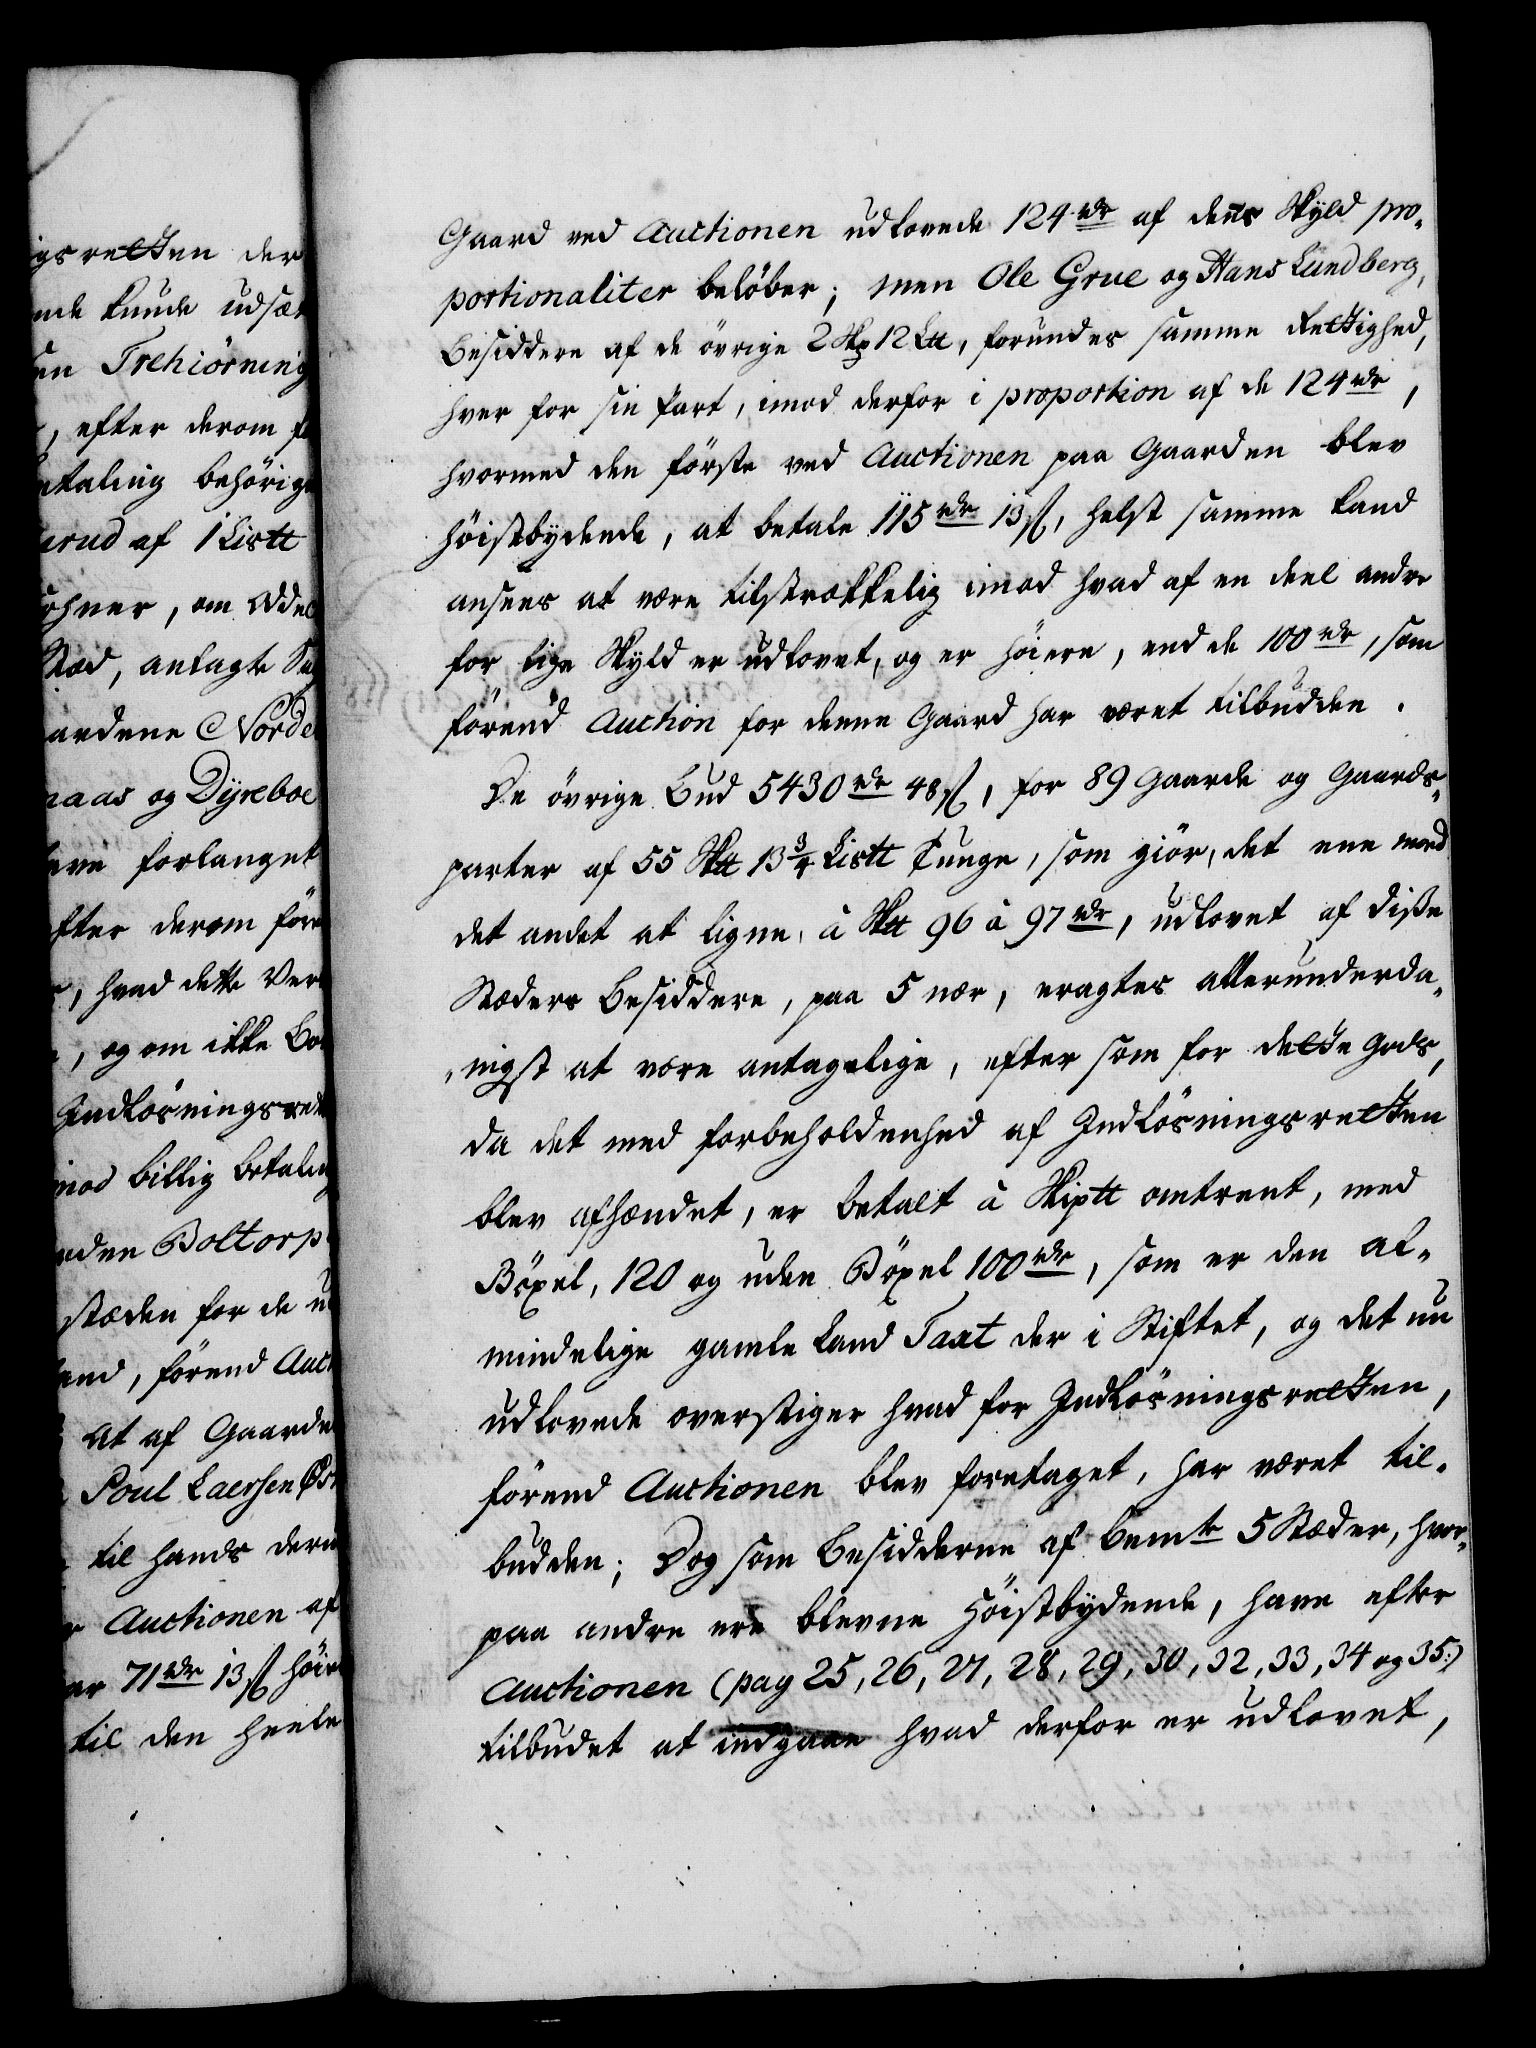 gsretten der
nde kunde udsæt
en Trehiörning
, efter derom
etaling behörig
erud af 1 Lis℔
ohner, om Odel
Stæd, anlagte
aardene Norde
naas og Dyreboe
ave forlanget
fter derom före
, hvad dette Ver
, og om ikke
Indlösningsret
mod billig betaling
rden Boltorp
stæden for de
and, förend Auct
At af Gaarde
Poul Laersen
til hands
r Auctionen af
er 71 rdr 13 ß höie
til den heele
Gaard ved Auctionen udlovede 124 rdr af dens Skyld pro-
portionaliter belöber; men Ole Grue og Hans Lundberg,
Besiddere af de övrige 2 Skp 12 L℔, forundes samme Rettighed,
hver for sin Part, imod derfor i proportion af de 124 rdr,
hvormed den förste ved Auctionen paa Gaarden blev
höistbydende, at betale 115 rdr 13 ß, helst samme kand
ansees at være tilstrækkelig imod hvad af en deel andre
for lige Skyld er udlovet, og er höiere, end de 100 rdr, som
förend Auction for denne Gaard har været tilbudden.
De övrige Bud 5430 rdr 48 ß, for 89 Gaarde og Gaards-
parter af 55 Sk℔ 13 3/4 Lis℔ Tunge, som giör, det ene med
det andet at ligne, à Sk℔ 96 à 97 rdr, udlovet af diße
Stæders Besiddere, paa 5 nær, eragtes allerunderda-
nigst at være antagelige, efter som for dette Gods,
da det med forbeholdenhed af Indlösningsretten
blev afhændet, er betalt à Skip℔ omtrent, med
Böxel, 120 og uden Böxel 100 rdr, som er den al-
mindelige gamle Land Taxt der i Stiftet, og det nu
udlovede overstiger hvad for Indlösningsretten,
förend Auctionen blev foretaget, har været til-
budden; Dog som Besidderne af bemte 5 Stæder, hvor-
paa andre ere blevne Höistbydende, have efter
Auctionen (pag 25, 26, 27, 28, 29, 30, 32, 33, 34 og 35:)
tilbudet at indgaae hvad derfor er udlovet,